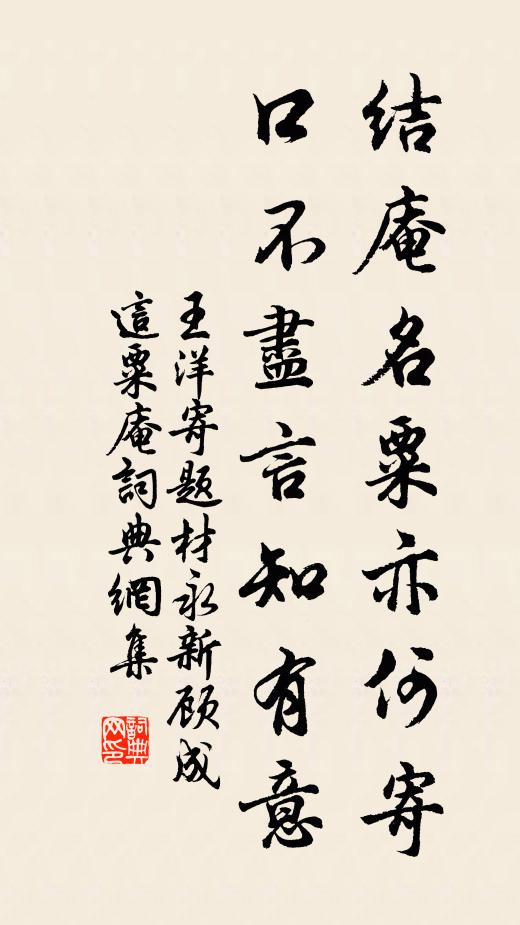 结庵名粟亦何寄
口不盡言知有意
王洋寄题材永新顾成
這粟庵詞典網集
詞典网印